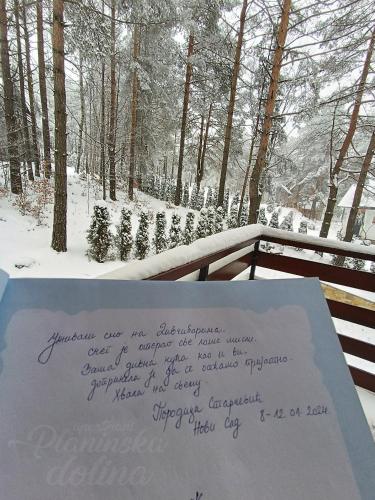 Уживали смо на Дивчиборама..
снег је отерао све лоше мисли.
Ваша дивна кућа као и ви.
допринела је да се осећамо пријатно.
Хвала на свему.
Породица Старчевић
Нови Сад 8-12.01.2024.
apartmani
Planinska
dolina